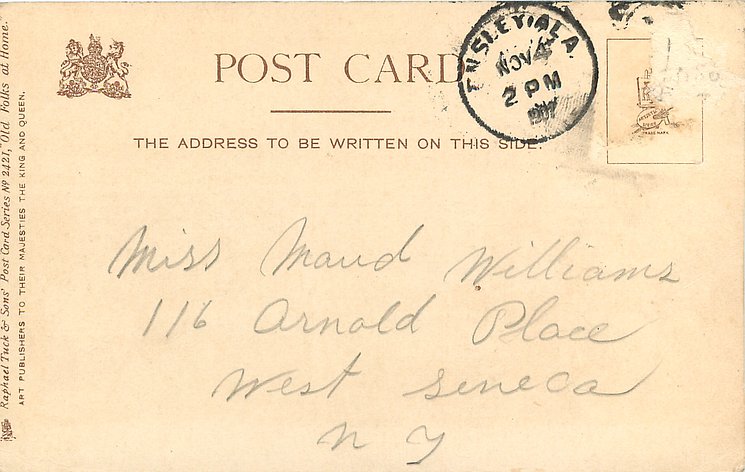 POST CARD
THE ADDRESS TO BE WRITTEN ON THIS SIDE.
ENSLEY, ALA.
NOV 4
2 PM
1907
TRADE MARK
Miss Maud Williams
116 Arnold Place
West Seneca
N Y
Raphael Tuck & Sons' Post Card Series Nº 2421, "Old Folks at Home."
ART PUBLISHERS TO THEIR MAJESTIES THE KING AND QUEEN.